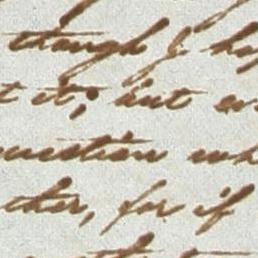 though I ho
t it; but ev
uestion wh
ther, for if